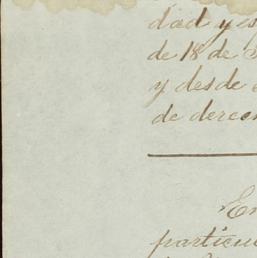 dad y
de 18 de
y desde
de derec
En
particu